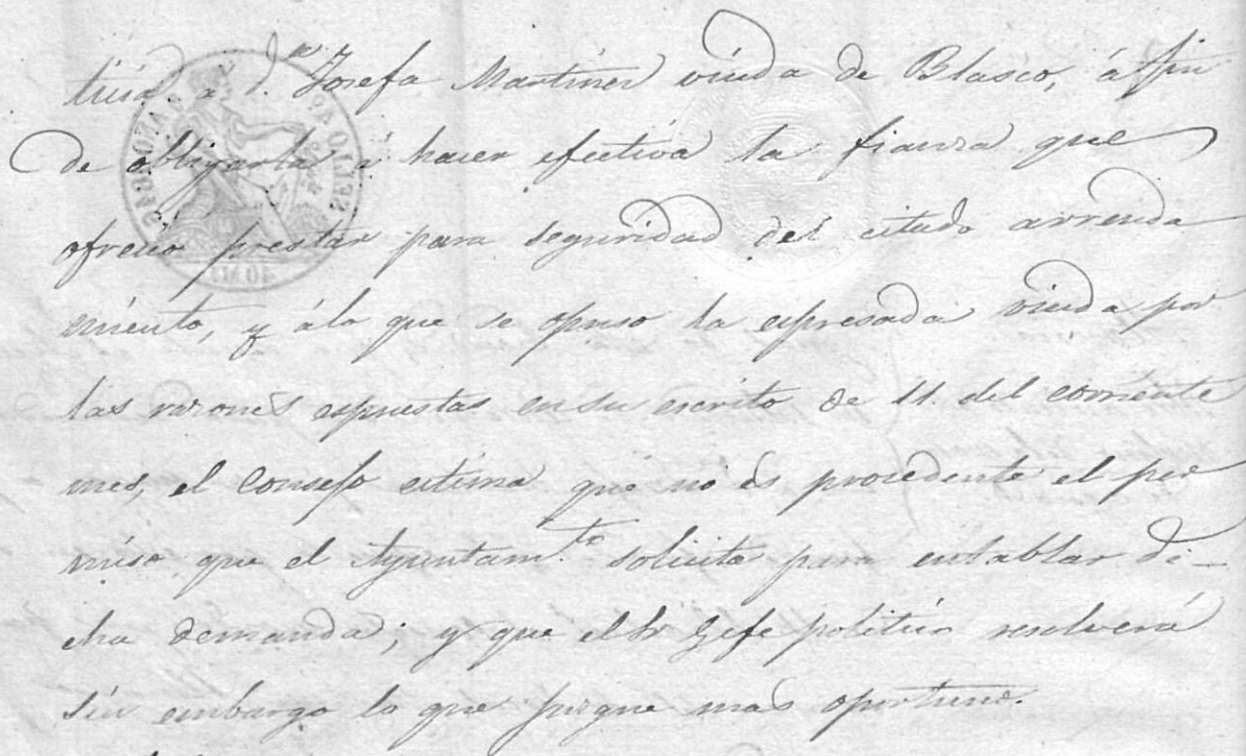 a D.ª Josefa Martinez viuda de Blasco, á fin
de obligarla á hacer efectiva la fianza que
ofreció prestar para seguridad del citado arrenda
miento, y álo que se opuso la espresada viuda por
las razones espuestas en su escrito de 11. del corriente
mes, el Consejo estima que no és procedente el per
miso que el Ayuntam.to solicita para entablar di-
cha demanda; y que el Sr Gefe político resolverá
sin embargo lo que juzgue mas oportuno.